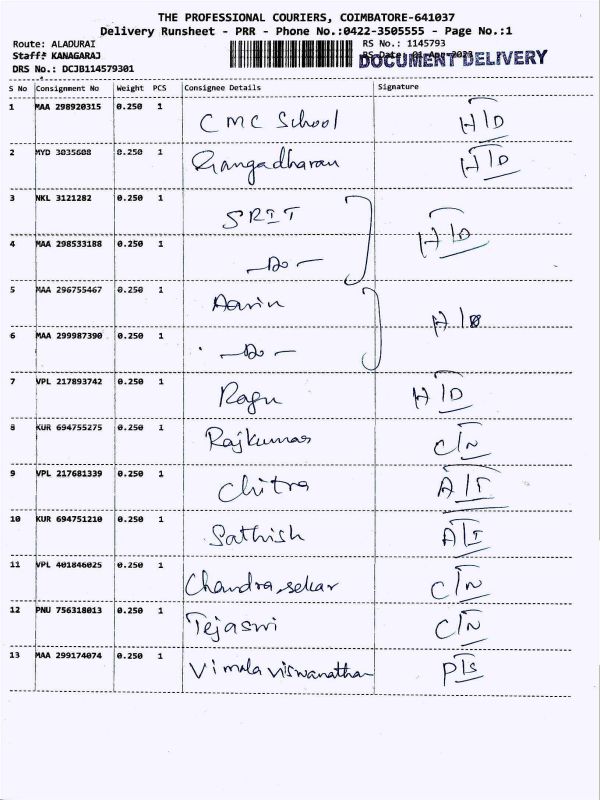 THE PROFESSIONAL COURIERS, COIMBATORE-641037
Delivery Runsheet - PRR - Phone No.:0422-3505555 - Page No.:1
Route: ALADURAI
RS No.: 1145793
Staff: KANAGARAJ
RS Date: 01-Apr-2023
DOCUMENT DELIVERY
DRS No.: DCJB114579301
S No Consignment No Weight PCS Consignee Details Signature
1 MAA 298920315 0.250 1 CMC School H/D
2 MYD 3035608 0.250 1 Gangadharan H/D
3 NKL 3121282 0.250 1 SRIT H/D
4 MAA 298533188 0.250 1 -Do-
5 MAA 296755467 0.250 1 H/D
6 MAA 299987390 0.250 1 -Do-
7 VPL 217893742 0.250 1 Ragu H/D
8 KUR 694755275 0.250 1 Rajkumar C/N
9 VPL 217681339 0.250 1 Chitra A/T
10 KUR 694751210 0.250 1 Sathish A/I
11 VPL 401846025 0.250 1 Chandra sekar C/N
12 PNU 756318013 0.250 1 Tejaswi C/N
13 MAA 299174074 0.250 1 Vimala Viswanathan P/S